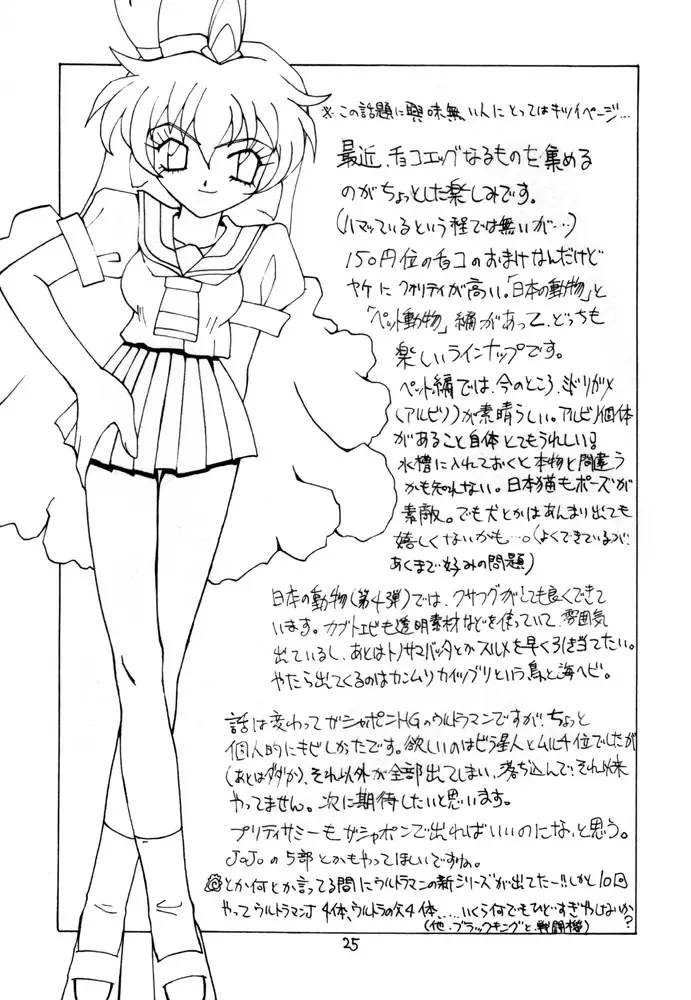 ※この話題に興味無い人にとってはキツイページ…
最近、チョコエッグなるものを集める
のがちょっとした楽しみです。
(ハマッているという程では無いが…)
150円位のチョコのおまけなんだけど
ヤケにクォリティが高い。「日本の動物」と
「ペット動物」編があって、どっちも
楽しいラインナップです。
ペット編では、今のところ、ミドリガメ
(アルビノ)が素晴らしい。アルビノ個体
があること自体とてもうれしい!
水槽に入れておくと本物と間違う
かも知れない。日本猫もポーズが
素敵。でも犬とかはあんまり出ても
嬉しくないかも…。(よくできているが、
あくまで好みの問題)
日本の動物(第4弾)では、クサフグがとても良くできて
います。カブトエビも透明素材などを使っていて、雰囲気
出ているし、あとはトノサマバッタとかスルメを早く引き当てたい。
やたら出てくるのはカンムリカイツブリという鳥と海ヘビ。
話は変わってガシャポンHGのウルトラマンですが、ちょっと
個人的にキビしかったです。欲しいのはビラ星人とムルチ位でしたが
(あとはダダか)、それ以外が全部出てしまい、落ち込んで、それ以来
やってません。次に期待したいと思います。
プリティサミーもガシャポンで出ればいいのにな、と思う。
JoJoの5部とかもやってほしいですね。
とか何とか言ってる間にウルトラマンの新シリーズが出てたー!!しかし10回
やってウルトラマンJ 4体、ウルトラの父4体、……いくら何でもひどすぎやしないか?
(他、ブラックキングと、戦闘機)
25